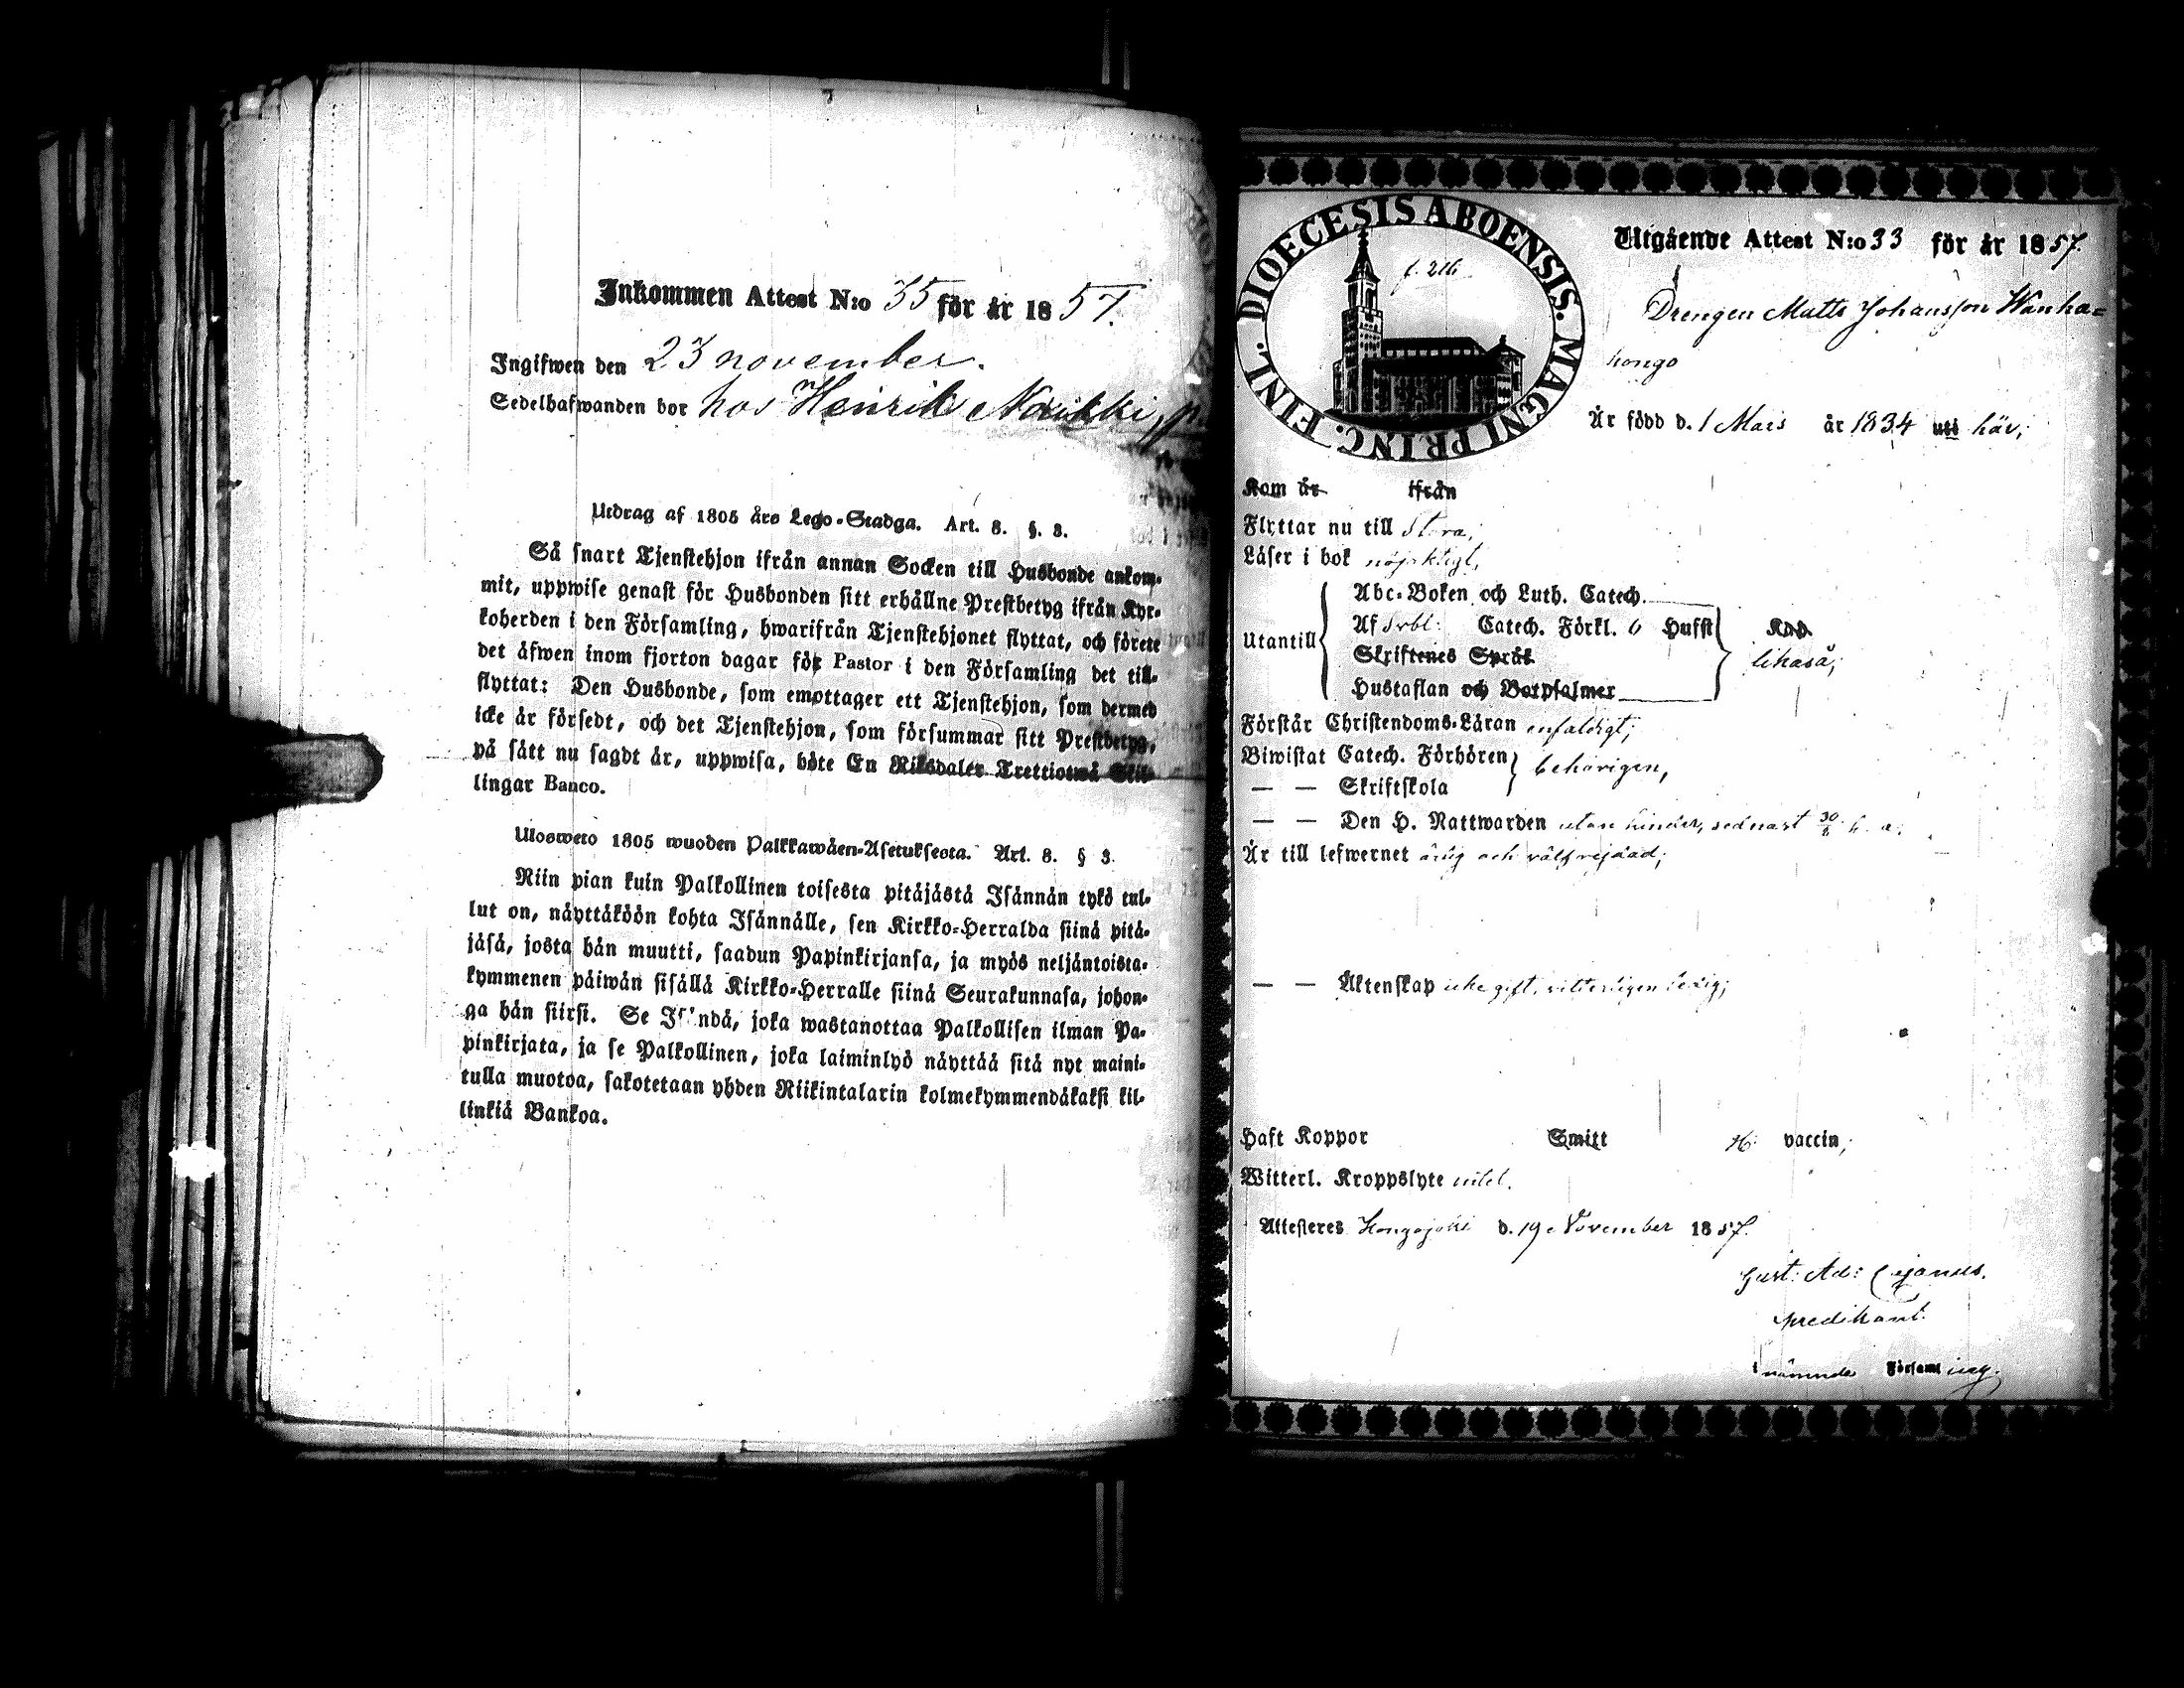 Inkommen Attest N:o 35 för år 1857.
Ingifwen den 23 november.
Sedelhafwanden bor hos Henrik Noukki,
Utdrag af 1805 års Lego-Stadga. Art. 8. §. 3.
Så snart Tjenstehjon ifrån annan Socken till Husbonde ankom-
mit, uppwise genast för Husbonden sitt erhållne Prestbetyg ifrån Kyr-
koherden i den Församling, hwarifrån Tjenstehjonet flyttat, och förete
det äfwen inom fjorton dagar för Pastor i den Församling det till-
flyttat: Den Husbonde, som emottager ett Tjenstehjon, som dermed
icke är försedt, och det Tjenstehjon, som försummar sitt Prestbetyg,
på sätt nu sagdt är, uppwisa, böte En Riksdaler Trettiotwå Skil-
lingar Banco.
Ulosweto 1805 wuoden Palkkawäen-Asetuksesta. Art. 8. § 3.
Niin pian kuin Palkollinen toisesta pitäjästä Isännän tykö tul-
lut on, näyttäköön kohta Isännälle, sen Kirkko-Herralda siinä pitä-
jäsä, josta hän muutti, saadun Papinkirjansa, ja myös neljäntoista-
kymmenen päiwän sisällä Kirkko-Herralle siinä Seurakunnasa, johon-
ga hän siirsi. Se Isändä, joka wastanottaa Palkollisen ilman Pa-
pinkirjata, ja se Palkollinen, joka laiminlyö näyttää sitä nyt maini-
tulla muotoa, sakotetaan yhden Riikintalarin kolmekymmendäkaksi kil-
linkiä Bankoa.
DIOECESIS ABOENSIS. MAGNI PRINC. FINL.
f. 216
Utgående Attest N:o 33 för år 1857.
Drengen Matts Johansson Wanha-
hongo
Är född d. 1 Mars år 1834 uti här;
Kom år ifrån
Flyttar nu till Stora;
Läser i bok nöjaktigt,
Utantill
Abc-Boken och Luth. Catech.
Af Svbl: Catech. Förkl. 6 Hufst
Skriftenes Språk
Hustaflan och Botpsalmer
likaså;
Förstår Christendoms-Läran enfaldigt;
Biwistat Catech. Förhören
behörigen,
— — Skriftskola
— — Den H. Nattwarden utan hinder, sednast 30/8 h. a.
Är till lefwernet ärlig och välfrejdad;
— — Äktenskap icke gift, vitterligen ledig;
Haft Koppor Smitt vaccin;
Witterl. Kroppslyte intet.
Attesteres Hongojoki d. 19 November 1857.
Gust: Ad: Cajanus.
predikant.
i nämnde Församling.